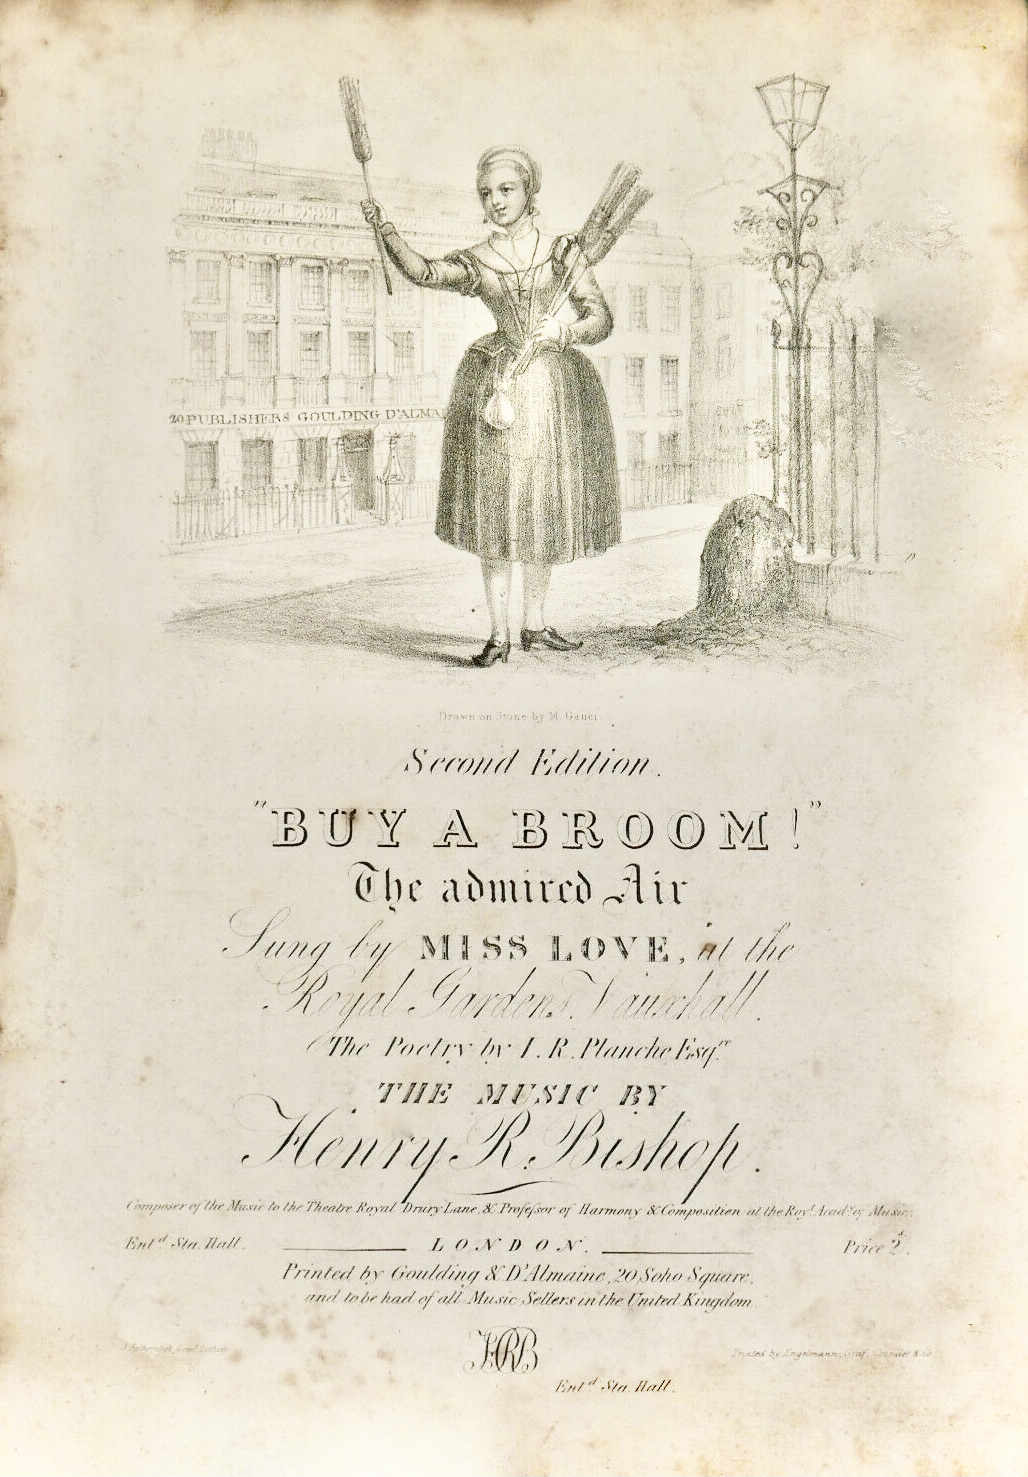 20 PUBLISHERS GOULDING D'ALMA
Drawn on Stone by M. Gauci.
Second Edition.
"BUY A BROOM!"
The admired Air
Sung by MISS LOVE, at the
Royal Gardens, Vauxhall.
The Poetry by I. R. Planche Esqre
THE MUSIC BY
Henry R. Bishop.
Composer of the Music to the Theatre Royal Drury Lane, & Professor of Harmony & Composition at the Royl. Acady. of Music.
Entd. Sta. Hall. LONDON. Price 2/.
Printed by Goulding & D'Almaine, 20 Soho Square,
and to be had of all Music Sellers in the United Kingdom.
HRB
Printed by Engelmann, Graf, Coindet & Co
Entd. Sta. Hall.